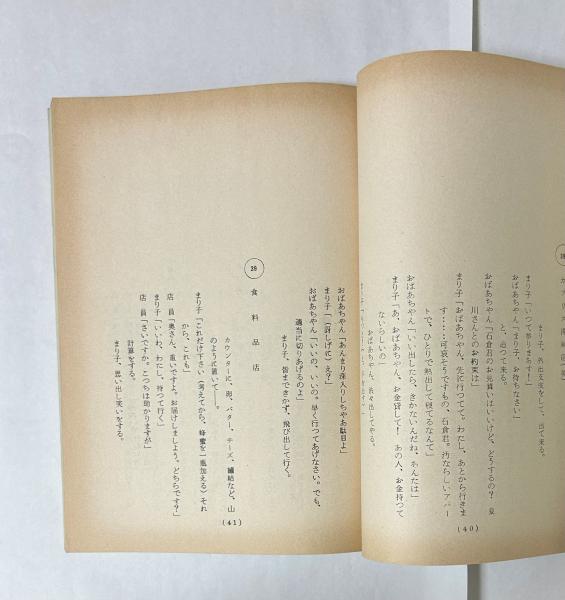 まり子、外出支度をして、出て来る。
まり子「いつて参りまあす！」
おばあちやん「まり子、お待ちなさい」
と、追つて来る。
おばあちやん「石倉君のお見舞いはいいけど、どうするの？　泉
川さんとのお約束は」
まり子「おばあちやん、先に行つてて。わたし、あとから行きま
す‥‥可哀そうですもの、石倉君。汚ならしいアパー
トで、ひとりで熱出して寝てるなんて」
おばあちやん「いい出したら、きかないんだね、あんたは」
まり子「あ、おばあちやん、お金貸して！　あの人、お金持つて
ないらしいの」
おばあちやん、金を出してやる。
(40)
おばあちやん「あんまり深入りしちやあ駄目よ」
まり子「（訝しげに）え？」
おばあちやん「いいの、いいの。早く行つてあげなさい。でも、
適当に切りあげるのよ」
まり子、皆まできかず、飛び出して行く。
39　食料品店
カウンターに、卵、バター、チーズ、罐結など、山
のように置いて――。
まり子「これだけ下さい（考えてから、蜂蜜を一瓶加える）それ
から、これも」
店員「奥さん、重いですよ。お届けしましよう。どちらです？」
まり子「いいわ、わたし、持つて行く」
店員「さいですか。こつちは助かりますが」
計算をする。
まり子、思い出し笑いをする。
(41)